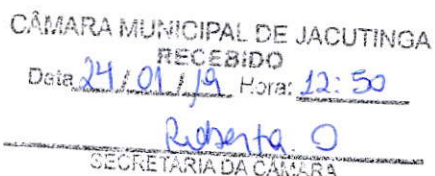 CÂMARA MUNICIPAL DE JACUTINGA
RECEBIDO
Data 24 / 01 / 19 Hora: 12:50
Roberta. O
SECRETARIA DA CÂMARA